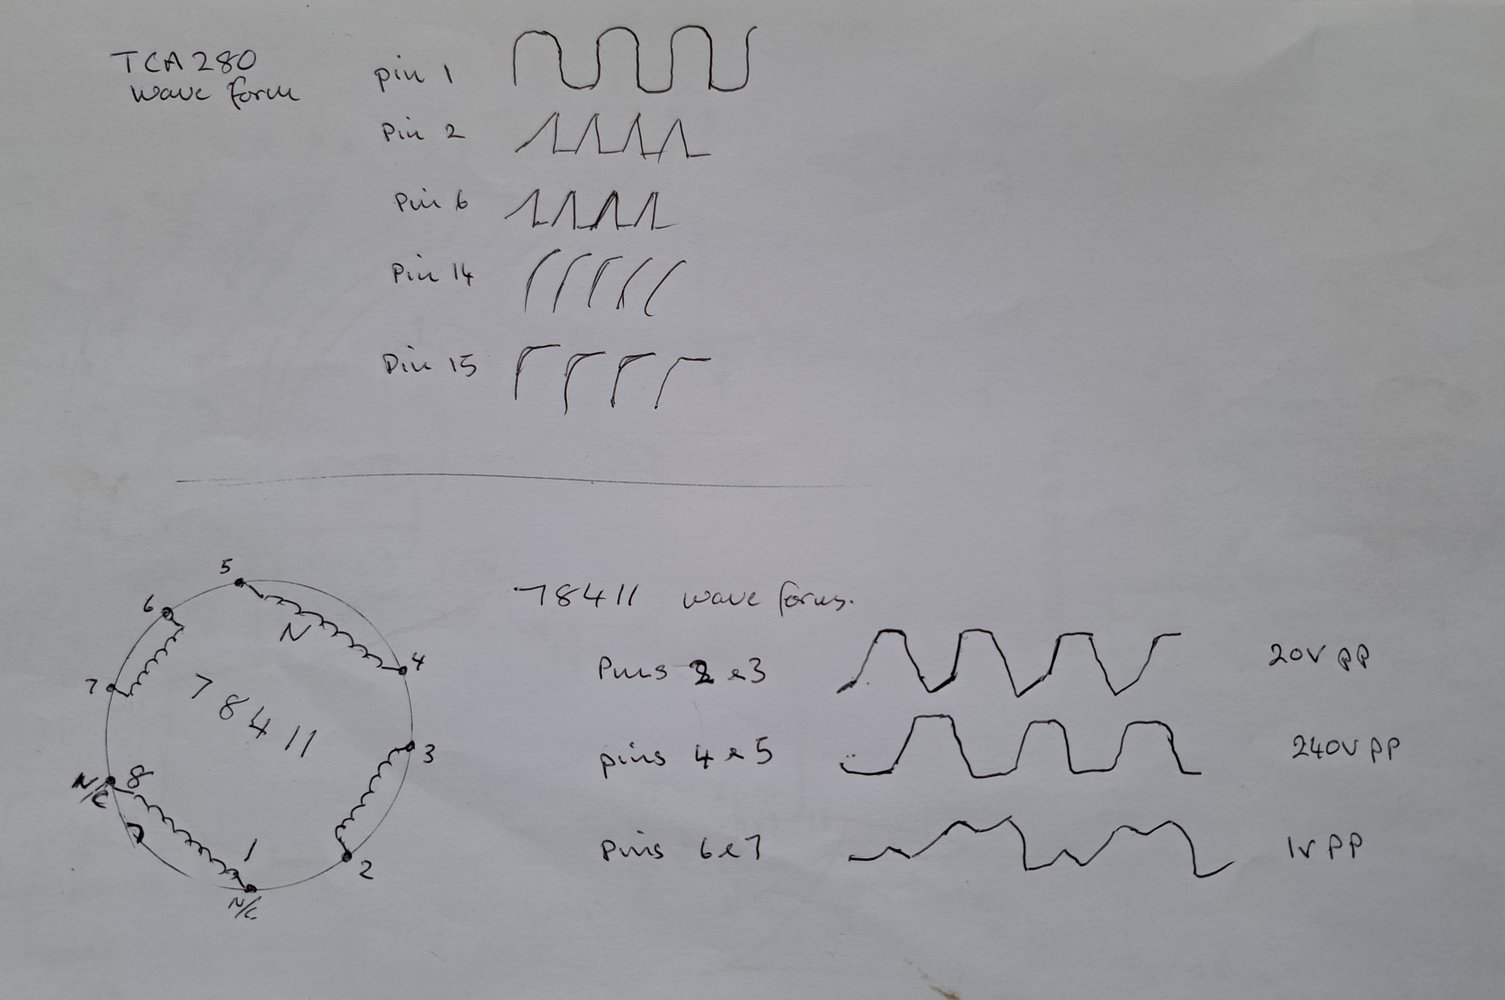 TCA280
wave form
pin 1
pin 2
Pin 6
Pin 14
Pin 15
5
6
N
4
7
78411
3
N/C
8
1
2
N/C
78411 wave forms.
Pins 2 & 3
20v pp
pins 4 & 5
240v pp
pins 6 & 7
1v pp